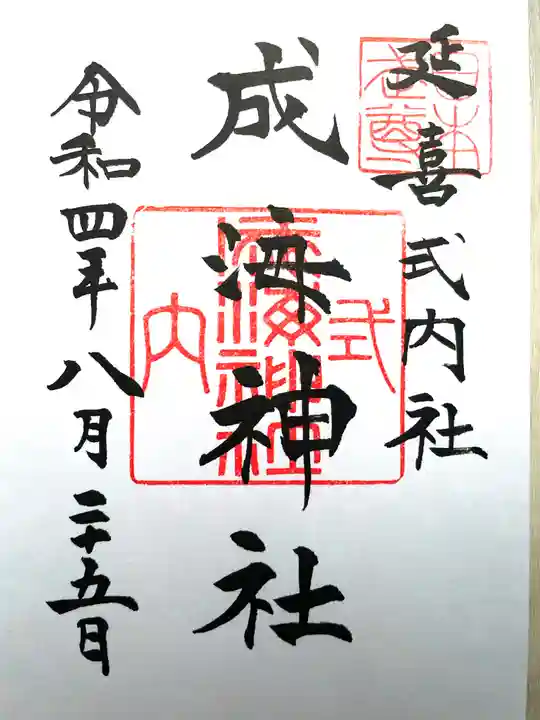 延喜式内社
成海神社
令和四年八月二十五日
式
内